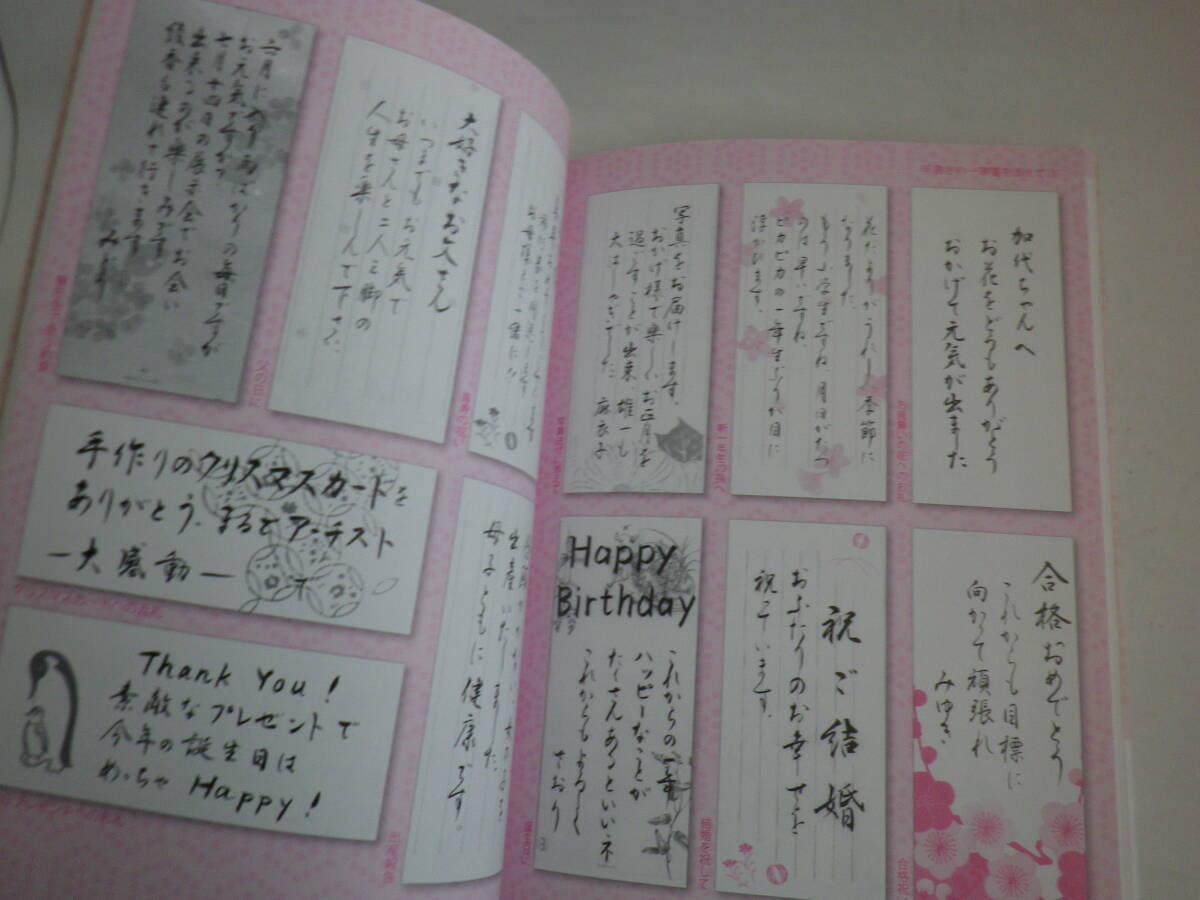 六月に入り雨ばかりの毎日ですが
お元気ですか?
七月十四日の展示会でお会い
出来るのが楽しみです。
も連れて行きます
みどり
大好きなお父さん
いつまでもお元気で
お母さんと二人三脚の
人生を楽しんで下さい
父の日に
手作りのクリスマスカートを
ありがとう、まるでアーチスト
―大感動―
クリスマスカードへのお礼
Thank You!
素敵なプレゼントで
今年の誕生日は
めっちゃHappy!
出産いたしました。
母子ともに健康です。
加代ちゃんへ
お花をどうもありがとう
おかげで元気が出ました
お見舞いの花へのお礼
花だよりがうれしい季節に
なりました。
もう小学生ですね、月日がたつ
のは早いですね
ピカピカの一年生ぶりが目に
浮かびます。
新一年生の孫へ
写真をお届けします。
おかげ様で楽しいお正月を
過ごすことが出来、雄一も
大はしゃぎでした 麻衣子
合格おめでとう
これからも目標に
向かって頑張れ
みゆき
合格祝い
祝ご結婚
おふたりのお幸せを
祝っています。
結婚を祝して
Happy
Birthday
これからの一年
ハッピーなことが
たくさんあるといいネ
これからもよろしく
さおり